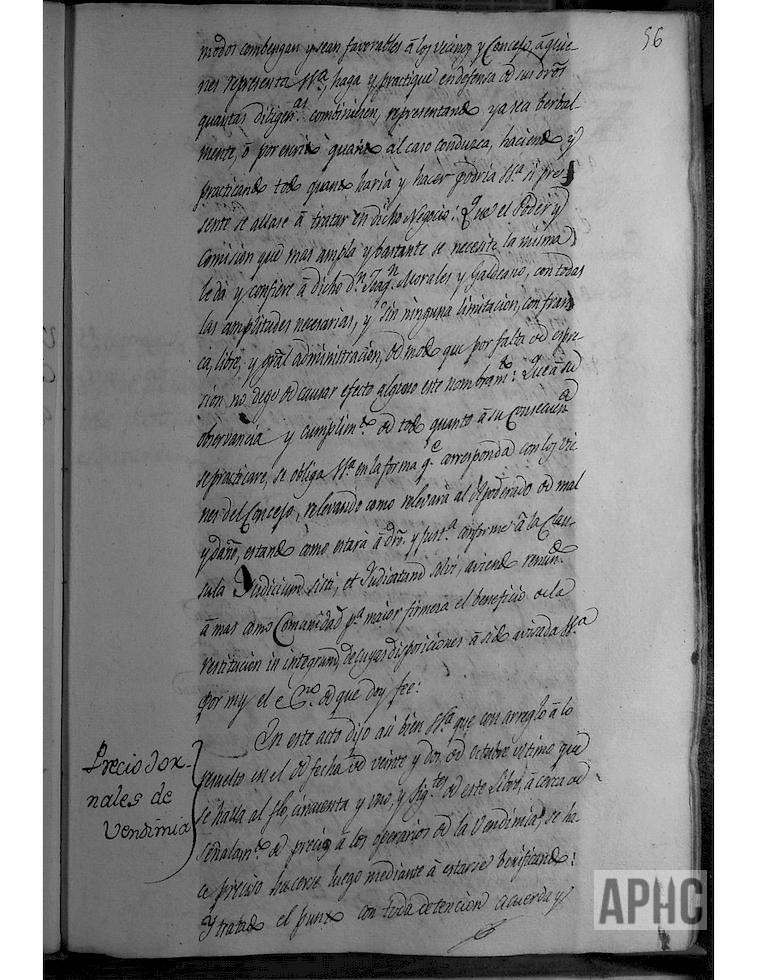 56
modos combengan y sean favorables â los vecinos y Concejo, â quie
nes representa Sª, haga y practique en defensa de sus dros
quantas diligenas combiniesen, representando ya sea berbal
mente, ô por escrito quanto al caso conduzca, haciendo y
practicando todo quanto haria y hacer podria Sª si pre
sente se allase â tratar en dicho Negocio: Que el Poder y
Comision que mas ampla y bastante se necesite la misma
le dà y confiere â dicho dn Joaqn Morales y Galdeano, con todas
las amplitudes necesarias, y sin ninguna limitacion, con fran
ca, libre, y gral administracion, de modo que por falta de espre
sion no deje de causar efecto alguno este nombramto: Que â su
observancia y cumplimto de todo quanto â su Consecuena
se practicare, se obliga Sª en la forma qe corresponda con los Vie
nes del Concejo, relevando como relevarà al Apoderado de mal
y daño, estando como estarà â dro. y justª conforme â la Clau-
sula Judicium sisti, et Judicatum solvi, aviendo renun
â mas como Comunidad pª maior firmesa el beneficio de la
restitucion in integrum, de cuyas disposiciones â sido avisada Sª
por my el Esno. de que doy fee:
In este acto dijo asi bien Sª que con arreglo â lo
resuelto en el de fecha de veinte y dos de octubre ultimo que
se halla al fo, cinquenta y uno, y sigtes de este Libro, â cerca de
señalamto de precio â los operarios de la Vendimia, se ha
ce preciso hacerse luego mediante â estarse berificando:
Y tratado el punto con toda detencion acuerda y
Precio Jor-
nales de
Vendimia
APHC